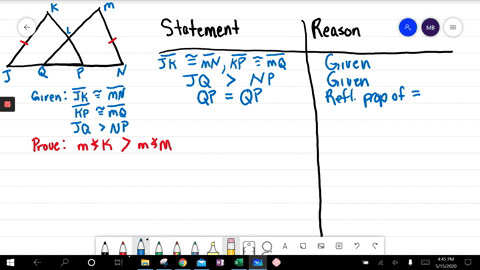 K M
L
J Q P N
Given: JK ≅ MN
KP ≅ MQ
JQ > NP
Prove: m∡K > m∡M
Statement Reason
JK ≅ MN, KP ≅ MQ Given
JQ > NP Given
QP = QP Refl. prop of =
MB
4:45 PM
5/15/2020